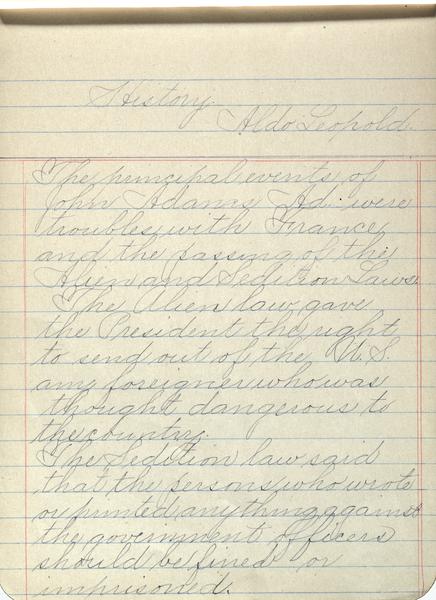 History
Aldo Leopold.
The principal events of
John Adams Ad. were
troubles with France
and the passing of the
Alien and Sedition Laws.
The Alien law gave
the President the right
to send out of the U.S.
any foreigner who was
thought dangerous to
the country.
The Sedition law said
that the persons who wrote
or printed anything against
the government officers
should be fined or
imprisoned.